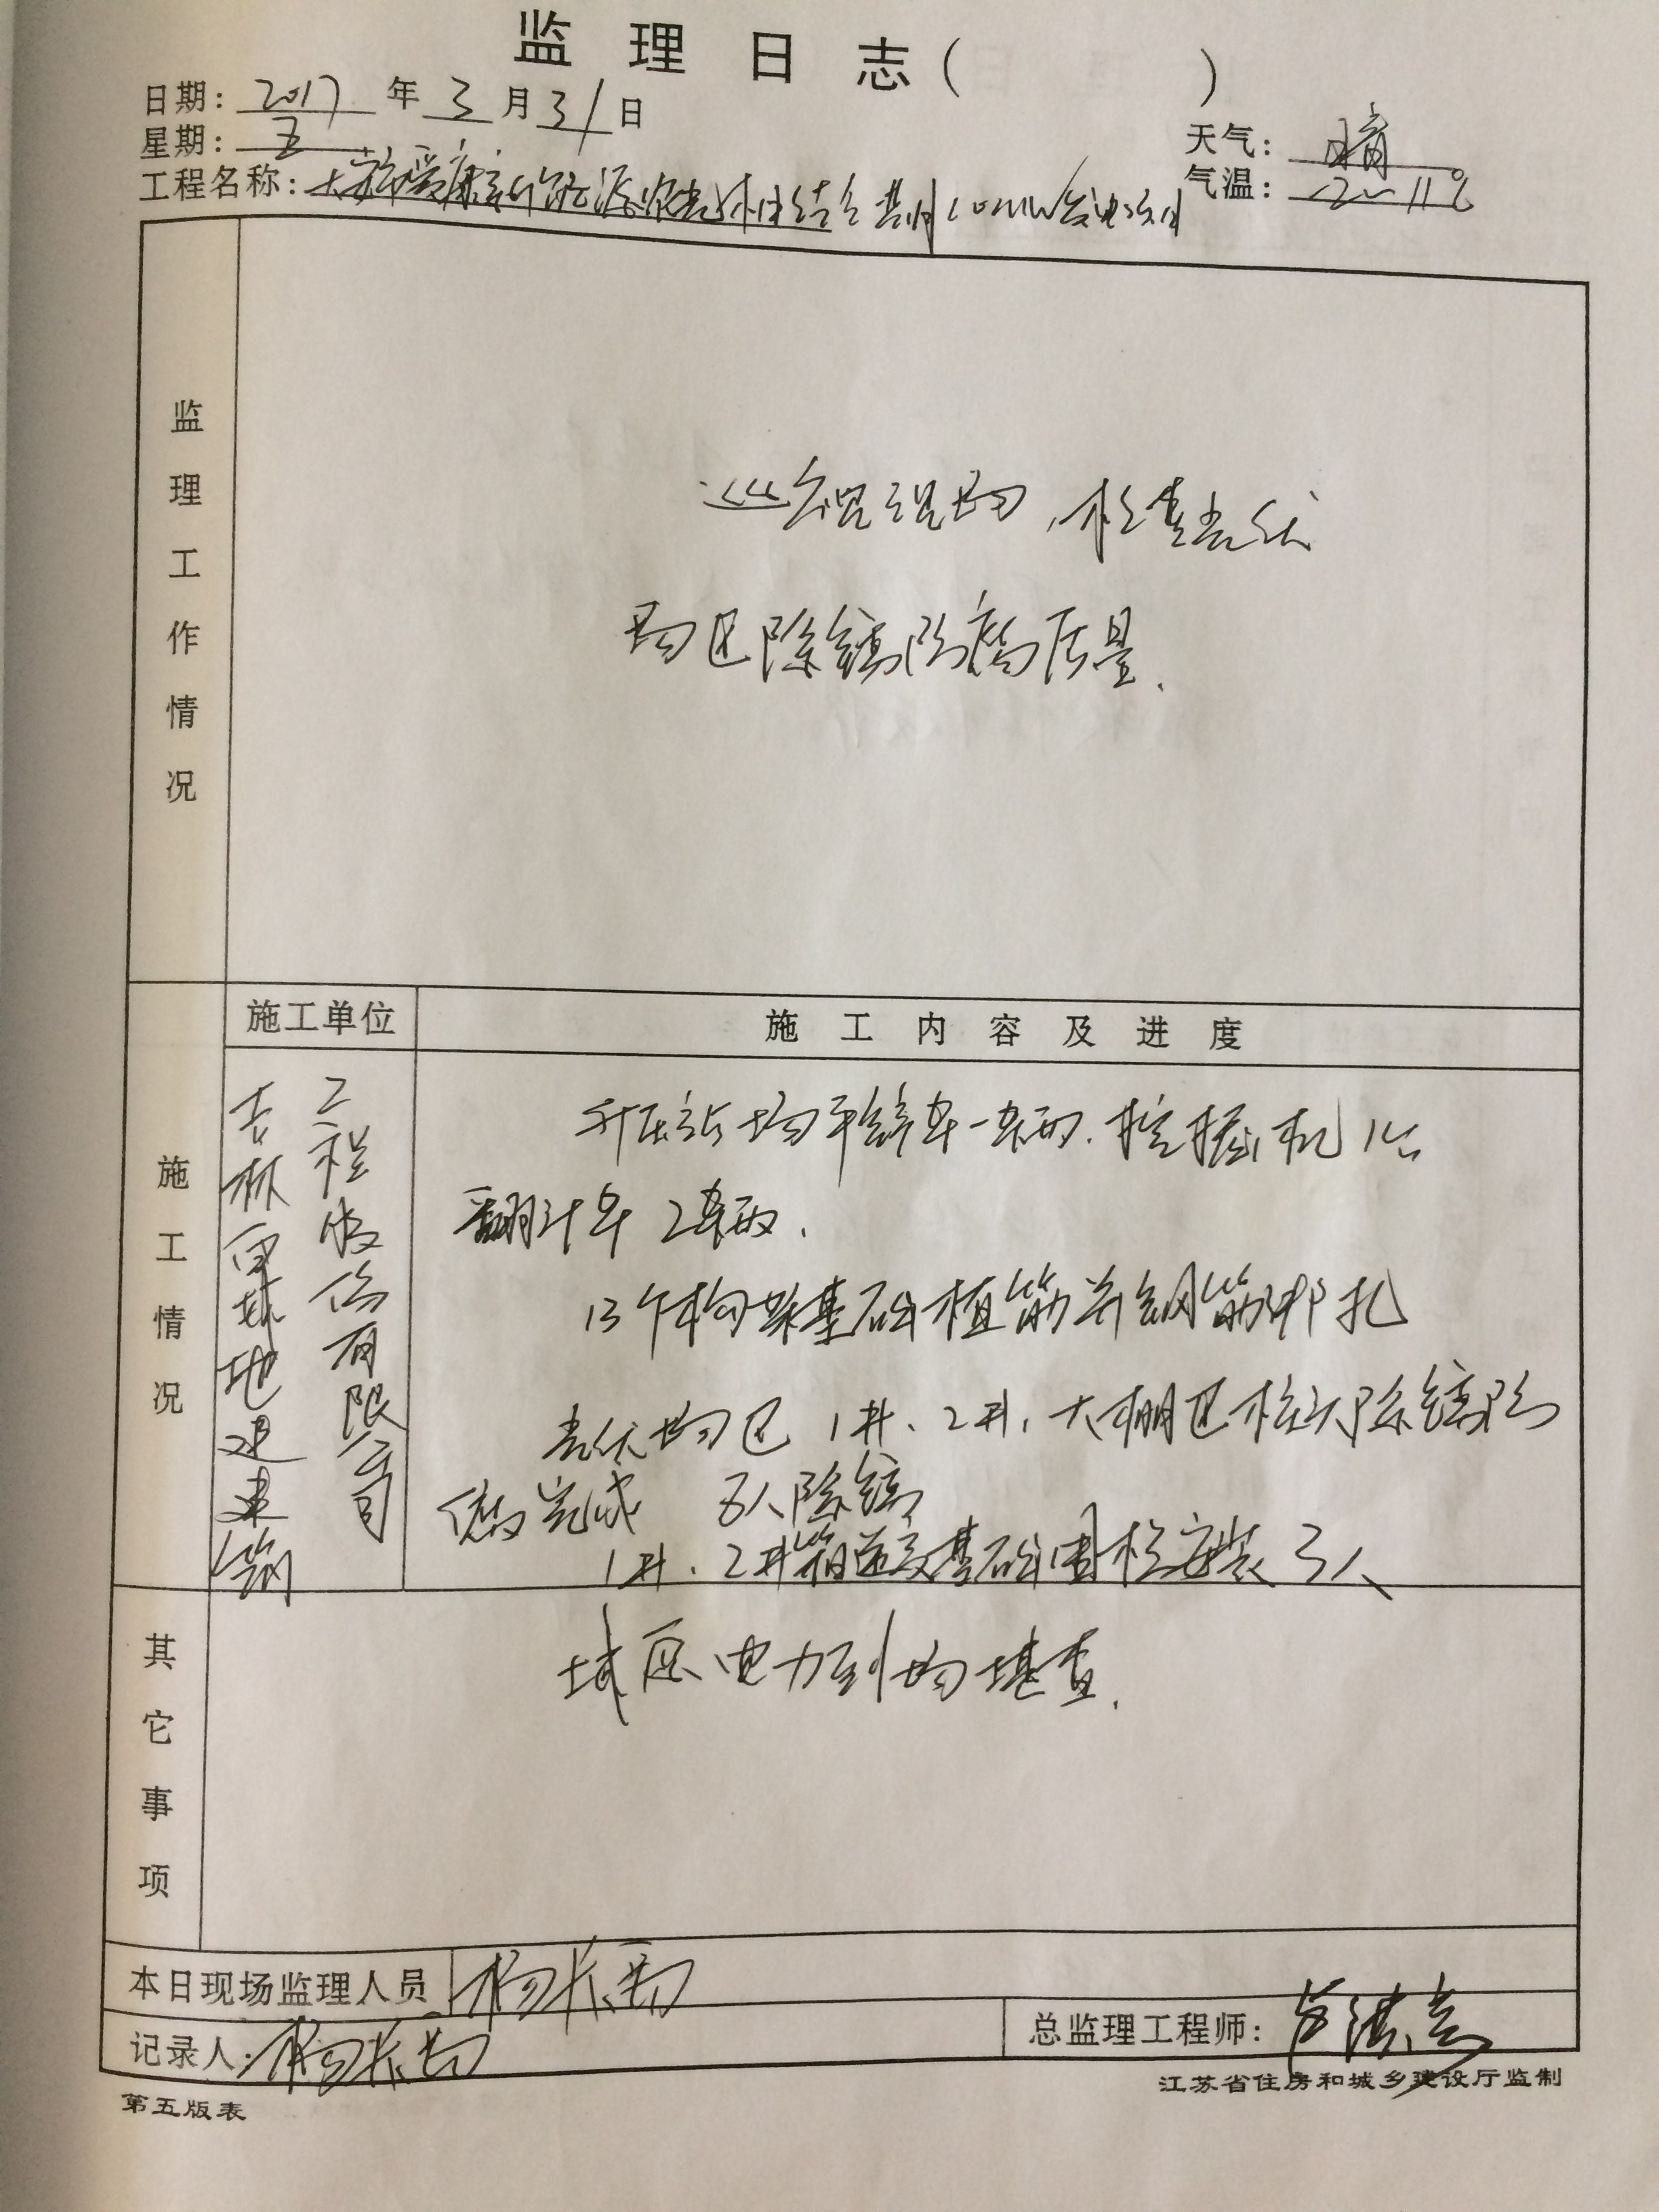 监理日志( )
日期: 2017 年 3 月 31 日
星期: 五
天气: 晴
工程名称: 大安爱康新能源农光林相结合 10MW发电项目
气温: -2~11℃
监理工作情况
巡视现场,检查光伏
场区除锈防腐质量.
施工情况
施工单位
施工内容及进度
吉林 地建筑
工程 有限公司
升压站场平 车一车辆.挖掘机1台
翻斗车2车辆.
13个构架基础植筋并钢筋绑扎
光伏场区1#、2#,大棚区桩头除锈防
腐完成 8人除锈
1#、2#箱变基础围栏安装3人
其它事项
城原电力到场堪查.
本日现场监理人员 杨长勇
记录人: 杨长勇
总监理工程师:
第五版表
江苏省住房和城乡建设厅监制